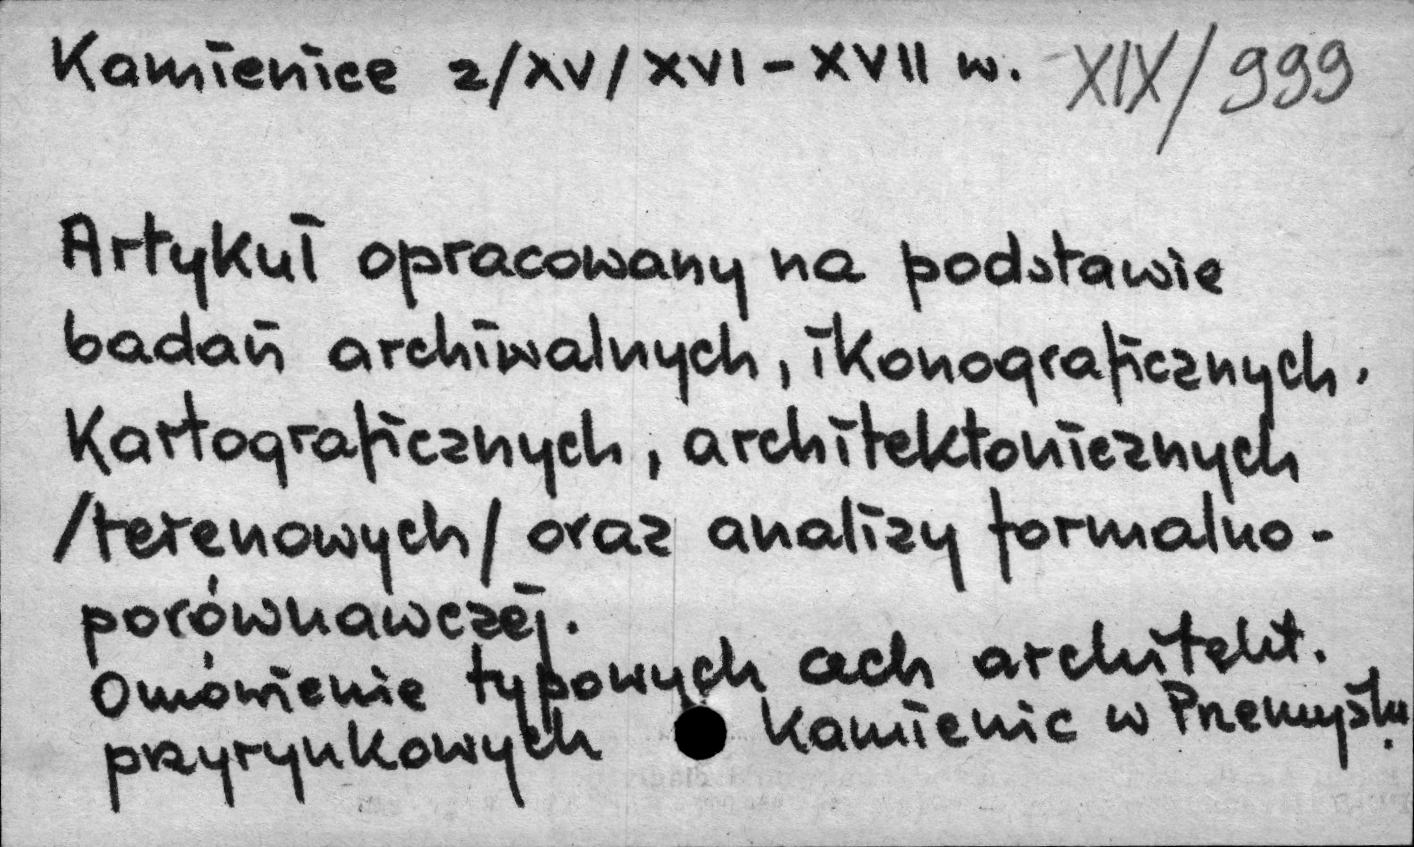 Kamienice z/XV/XVI-XVII w. XIX/999
Artykuł opracowany na podstawie
badań archiwalnych, ikonograficznych,
kartograficznych, architektonicznych
/terenowych/ oraz analizy formalno-
porównawczej.
Omówienie typowych cech architekt.
przyrynkowych kamienic w Przemyślu.